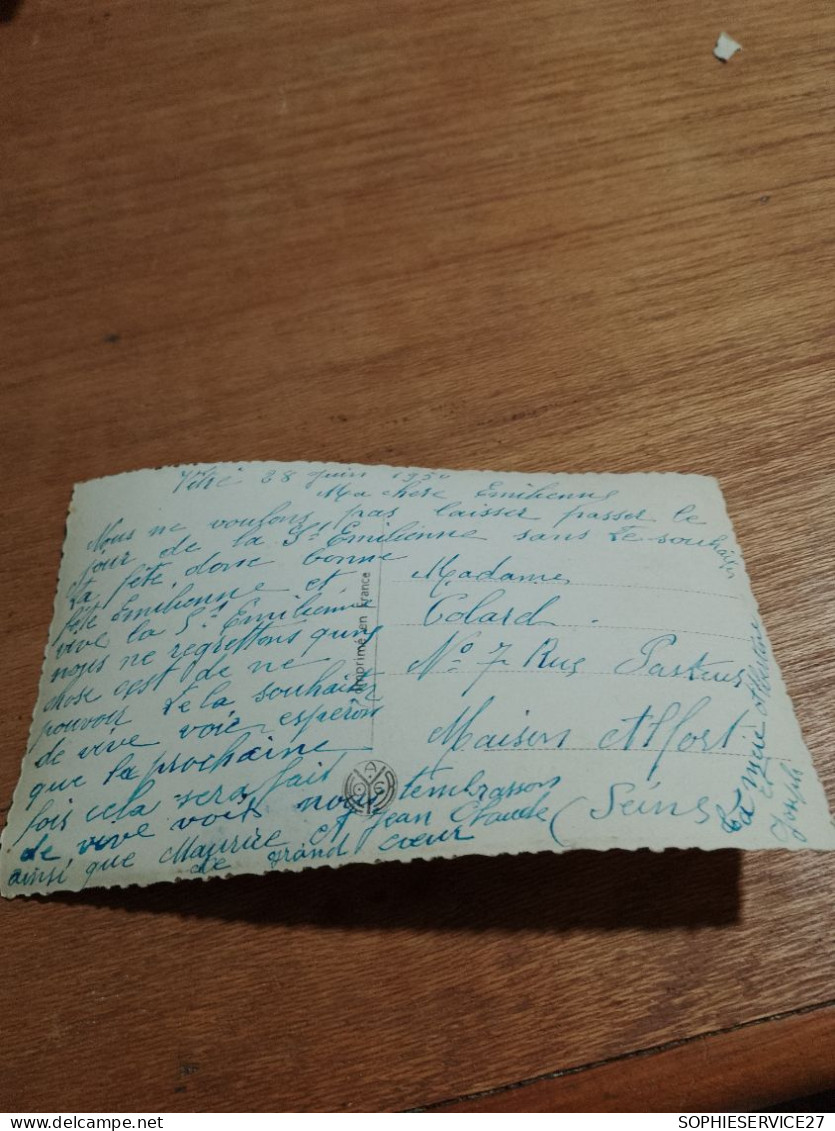 28 Juin 1950
Ma chere Emilienne
Nous ne voulons pas laisser passer le
jour de la St Emilienne sans te souhaiter
ta fête, donc bonne
fête Emilienne et
vive la St Emilienne
nous ne regrettons qu'une
chose c'est de ne
pouvoir te la souhaiter
de vive voie esperon
que la prochaine
fois cela sera fait
de vive voit nous t'embrasson
ainsi que Maurice et Jean Claude
de grand coeur
Imprimé en France
Madame
Colard
No 7 Rue Pasteur
Maison Alfort
(Seine)
Ta
Joseph
SOPHIESERVICE27